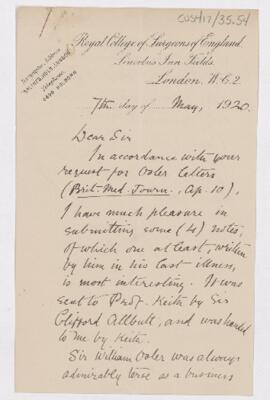 CUS417/35.54
Royal College of Surgeons of England,
Lincoln's Inn Fields,
London. W.C.2.
7th day of May, 1920.
Dear Sir
In accordance with your
request for Osler letters
(Brit. Med. Journ., Ap. 10),
I have much pleasure in
submitting some (4) notes,
of which one at least, written
by him in his last illness,
is most interesting. It was
sent to Prof. Keith by Sir
Clifford Allbutt, and was handed
to me by Keith.
Sir William Osler was always
admirably terse as a business